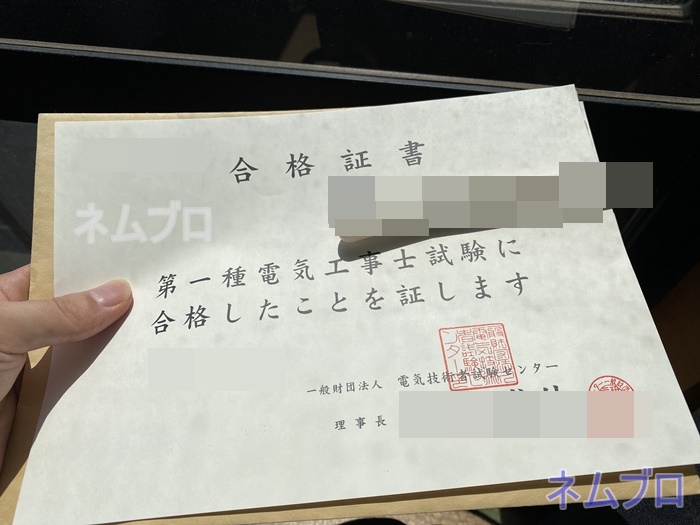 合格証書
ネムブロ
第一種電気工事士試験に
合格したことを証します
一般財団法人 電気技術者試験センター
理事長
ネムブロ